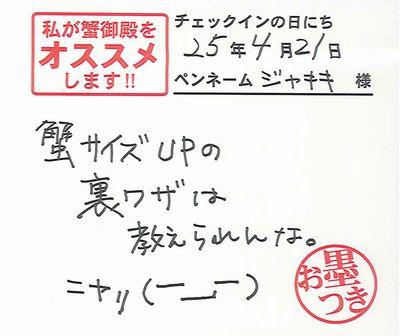 私が蟹御殿を
オススメ
します!!
チェックインの日にち
25年4月21日
ペンネーム ジャキキ 様
蟹サイズUPの
裏ワザは
教えられんな。
ニヤリ(ー__ー)
お墨つき